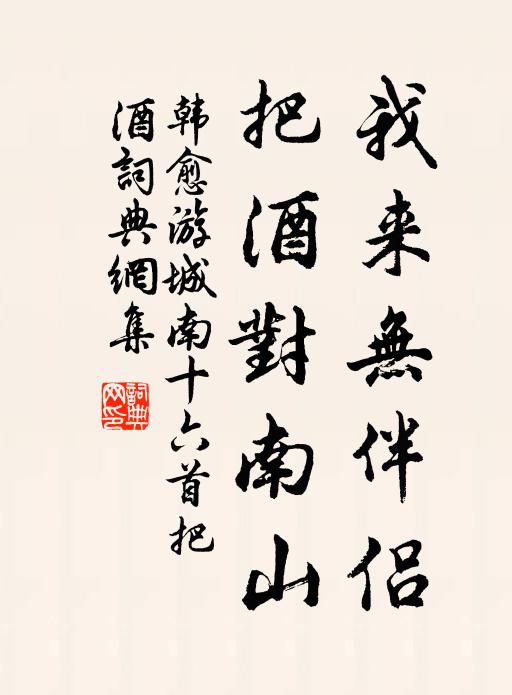 我来無伴侣
把酒對南山
韩愈游城南十六首把
酒詞典網集
詞典
网印